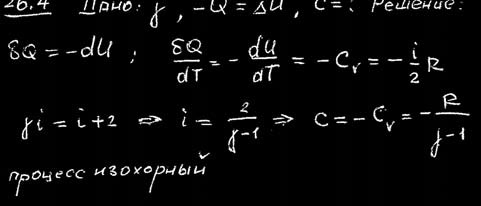 26.4 Дано: γ, -Q = ΔU, C=? Решение:
δQ = -dU ; δQ/dT = - dU/dT = -Cᵥ = - i/2 R
γi = i+2 ⇒ i = 2/γ-1 ⇒ C = -Cᵥ = -R/γ-1
процесс изохорный